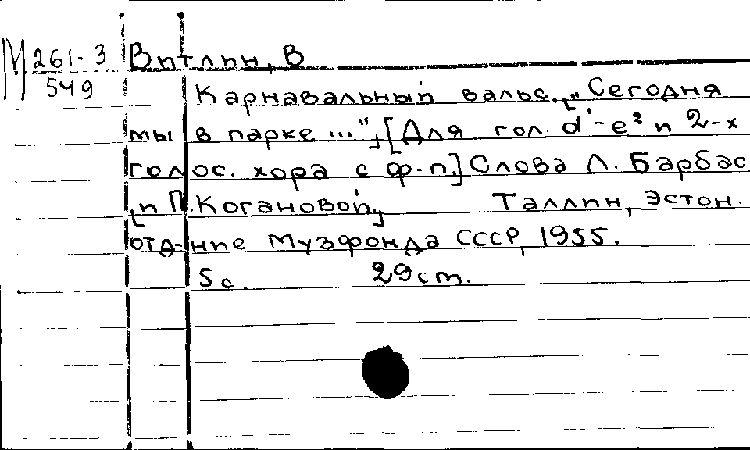 М 261-3
549
Витлин, В
Карнавальный вальс. ["Сегодня
мы в парке ..."] [Для гол. d'-e² и 2-х
голос. хора с ф-п.] Слова Л. Барбас
[и П. Когановой] Таллин, Эстон.
отд-ние Музфонда СССР, 1955.
5с. 29 см.